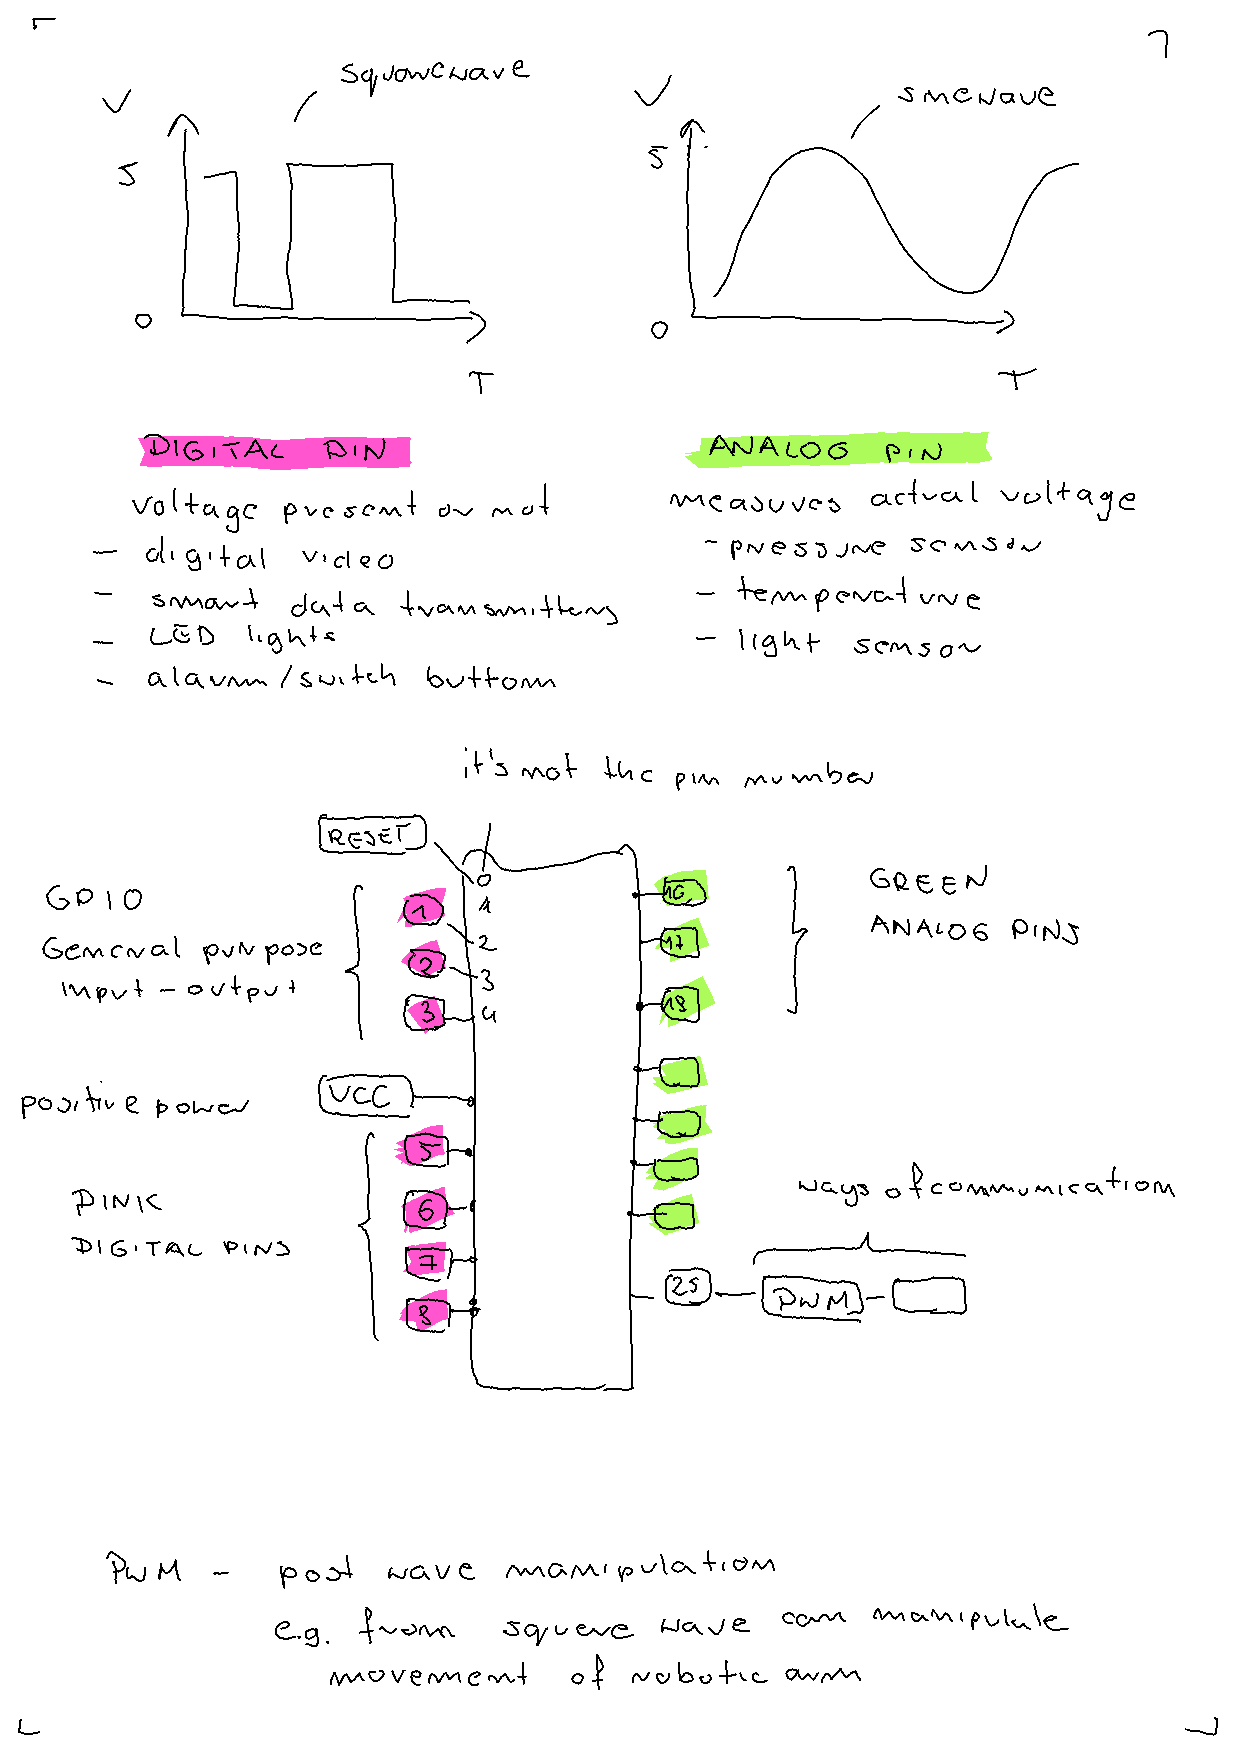 squarewave
V
5
0
T
sinewave
V
5
0
T
DIGITAL PIN
voltage present or not
- digital video
- smart data transmitters
- LED lights
- alarm/switch button
ANALOG PIN
measures actual voltage
- pressure sensor
- temperature
- light sensor
it's not the pin number
RESET
1
2
3
4
GPIO
General purpose
input - output
1
2
3
positive power
VCC
PINK
DIGITAL PINS
5
6
7
8
16
17
18
GREEN
ANALOG PINS
ways of communication
25
PWM
PWM - post wave manipulation
e.g. from squere wave can manipulate
movement of robotic arm